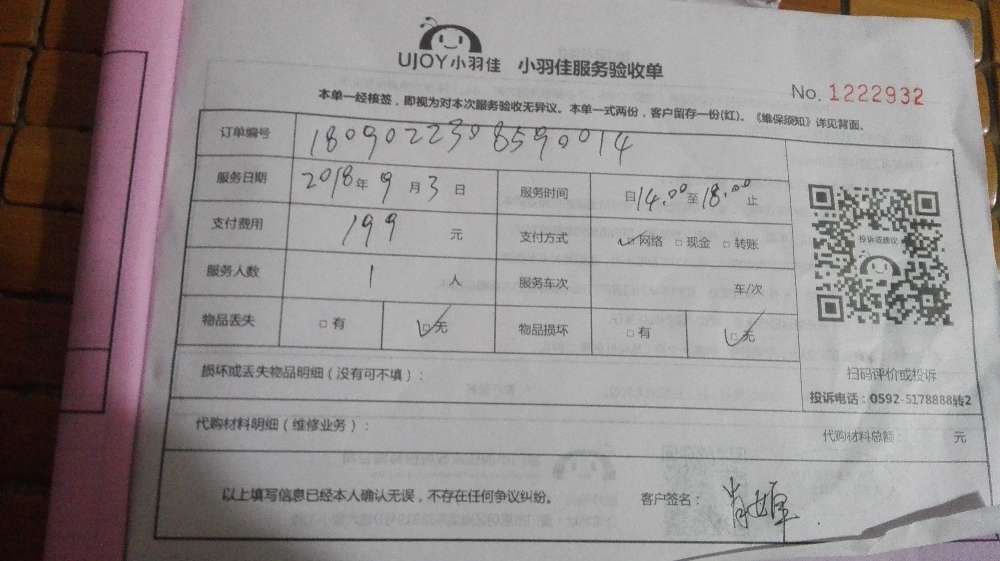 UJOY小羽佳 小羽佳服务验收单
No. 1222932
本单一经核签，即视为对本次服务验收无异议。本单一式两份，客户留存一份(红)。《维保须知》详见背面。
订单编号 1809022308590014
服务日期 2018年9月3日 服务时间 自14.00至18.00止
支付费用 199元 支付方式 ☑网络 □现金 □转账
服务人数 1人 服务车次 车/次
物品丢失 □有 ☑无 物品损坏 □有 ☑无
投诉或建议
扫码评价或投诉
投诉电话：0592-5178888转2
损坏或丢失物品明细（没有可不填）：
代购材料明细（维修业务）： 代购材料总额： 元
以上填写信息已经本人确认无误，不存在任何争议纠纷。 客户签名：